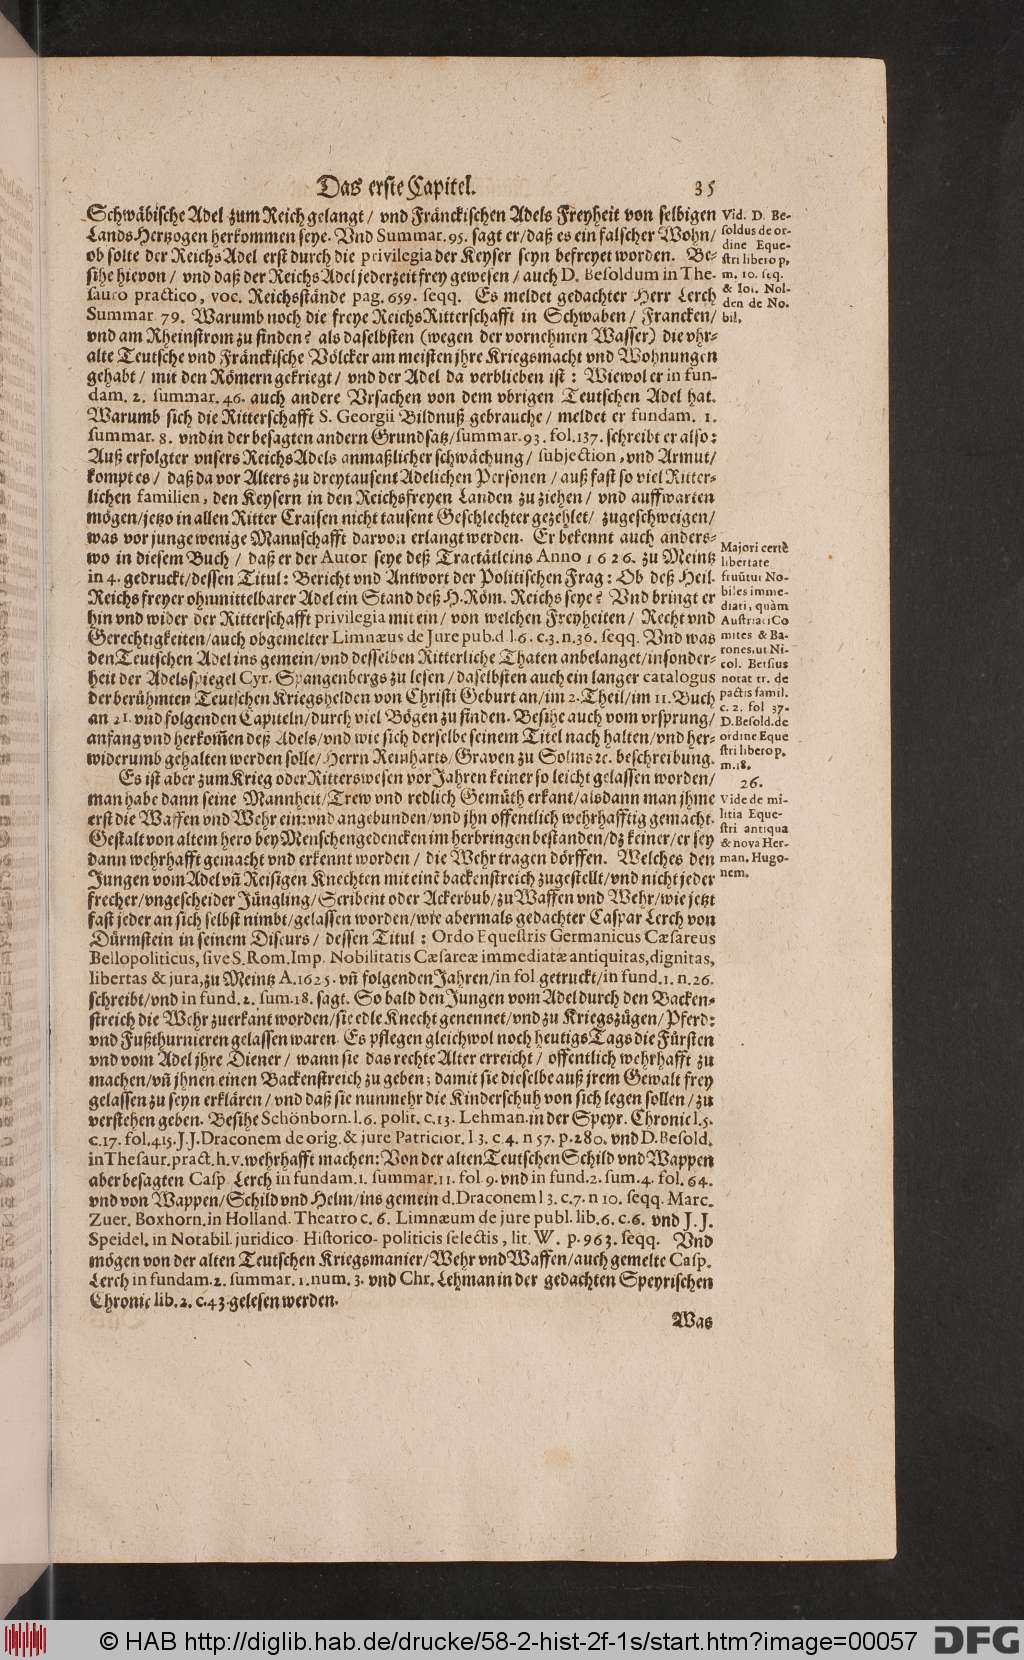 Das erste Capitel. 35
Schwäbische Adel zum Reich gelangt / vnd Fränckischen Adels Freyheit von selbigen
Lands Hertzogen herkommen seye. Vnd Summar. 95. sagt er / daß es ein falscher Wohn /
ob solte der Reichs Adel erst durch die privilegia der Keyser seyn befreyet worden. Be-
sihe hievon / vnd daß der Reichs Adel jederzeit frey gewesen / auch D. Besoldum in The-
sauro practico, voc. Reichsstände pag. 659. seqq. Es meldet gedachter Herr Lerch
Summar 79. Warumb noch die freye Reichs Ritterschafft in Schwaben / Francken /
vnd am Rheinstrom zu finden? als daselbsten (wegen der vornehmen Wasser) die vhr-
alte Teutsche vnd Fränckische Völcker am meisten jhre Kriegsmacht vnd Wohnungen
gehabt / mit den Römern gekriegt / vnd der Adel da verblieben ist: Wiewol er in fun-
dam. 2. summar. 46. auch andere Vrsachen von dem vbrigen Teutschen Adel hat.
Warumb sich die Ritterschafft S. Georgii Bildnuß gebrauche / meldet er fundam. 1.
summar. 8. vnd in der besagten andern Grundsatz / summar. 93. fol. 137. schreibt er also:
Auß erfolgter vnsers Reichs Adels anmaßlicher schwächung / subjection, vnd Armut /
kompt es / daß da vor Alters zu dreytausent Adelichen Personen / auß fast so viel Ritter-
lichen familien, den Keysern in den Reichsfreyen Landen zu ziehen / vnd auffwarten
mögen / jetzo in allen Ritter Craisen nicht tausent Geschlechter gezehlet / zugeschweigen /
was vor junge wenige Mannschafft darvon erlangt werden. Er bekennt auch anders-
wo in diesem Buch / daß er der Autor seye deß Tractätleins Anno 1626. zu Meintz
in 4. gedruckt / dessen Titul: Bericht vnd Antwort der Politischen Frag: Ob deß Heil.
Reichs freyer ohnmittelbarer Adel ein Stand deß H. Röm. Reichs seye? Vnd bringt er
hin vnd wider der Ritterschafft privilegia mit ein / von welchen Freyheiten / Recht vnd
Gerechtigkeiten / auch obgemelter Limnæus de Jure pub. d l. 6. c. 3. n. 36. seqq. Vnd was
den Teutschen Adel ins gemein / vnd desselben Ritterliche Thaten anbelanget / insonder-
heit der Adelsspiegel Cyr. Spangenbergs zu lesen / daselbsten auch ein langer catalogus
der berühmten Teutschen Kriegshelden von Christi Geburt an / im 2. Theil / im 11. Buch
an 21. vnd folgenden Capiteln / durch viel Bögen zu finden. Besihe auch vom vrsprung /
anfang vnd herkom̃en deß Adels / vnd wie sich derselbe seinem Titel nach halten / vnd her-
widerumb gehalten werden solle / Herrn Reinharts / Graven zu Solms ꝛc. beschreibung.
Es ist aber zum Krieg oder Ritterswesen vor Jahren keiner so leicht gelassen worden /
man habe dann seine Mannheit / Trew vnd redlich Gemüth erkant / alsdann man jhme
erst die Waffen vnd Wehr ein: vnd angebunden / vnd jhn offentlich wehrhafftig gemacht.
Gestalt von altem hero bey Menschengedencken im herbringen bestanden / dz keiner / er sey
dann wehrhafft gemacht vnd erkennt worden / die Wehr tragen dörffen. Welches den
Jungen vom Adel vñ Reisigen Knechten mit einẽ backenstreich zugestellt / vnd nicht jeder
frecher / vngescheider Jüngling / Scribent oder Ackerbub / zu Waffen vnd Wehr / wie jetzt
fast jeder an sich selbst nimbt / gelassen worden / wie abermals gedachter Caspar Lerch von
Dürmstein in seinem Discurs / dessen Titul: Ordo Equestris Germanicus Cæsareus
Bellopoliticus, sive S. Rom. Imp. Nobilitatis Cæsareæ immediatæ antiquitas, dignitas,
libertas & jura, zu Meintz A. 1625. vñ folgenden Jahren / in fol getruckt / in fund. 1. n. 26.
schreibt / vnd in fund. 2. sum. 18. sagt. So bald den Jungen vom Adel durch den Backen-
streich die Wehr zuerkant worden / sie edle Knecht genennet / vnd zu Kriegszügen / Pferd:
vnd Fußthurnieren gelassen waren. Es pflegen gleichwol noch heutigs Tags die Fürsten
vnd vom Adel jhre Diener / wann sie das rechte Alter erreicht / offentlich wehrhafft zu
machen / vñ jhnen einen Backenstreich zu geben; damit sie dieselbe auß jrem Gewalt frey
gelassen zu seyn erklären / vnd daß sie nunmehr die Kinderschuh von sich legen sollen / zu
verstehen geben. Besihe Schönborn. l. 6. polit. c. 13. Lehman. in der Speyr. Chronic l. 5.
c. 17. fol. 415. J. J. Draconem de orig. & jure Patricior. l 3. c 4. n 57. p. 280. vnd D. Besold.
in Thesaur. pract. h. v. wehrhafft machen: Von der alten Teutschen Schild vnd Wappen
aber besagten Casp. Lerch in fundam. 1. summar. 11. fol 9. vnd in fund. 2. sum. 4. fol. 64.
vnd von Wappen / Schild vnd Helm / ins gemein d. Draconem l 3. c. 7. n 10. seqq. Marc.
Zuer. Boxhorn. in Holland. Theatro c. 6. Limnæum de jure publ. lib. 6. c. 6. vnd J. J.
Speidel. in Notabil. juridico-Historico-politicis selectis, lit. W. p. 963. seqq. Vnd
mögen von der alten Teutschen Kriegsmanier / Wehr vnd Waffen / auch gemelte Casp.
Lerch in fundam. 2. summar. 1. num. 3. vnd Chr. Lehman in der gedachten Speyrischen
Chronic lib. 2. c. 43. gelesen werden.
Was
Vid. D. Be-
soldus de or-
dine Eque-
stri libero p,
m. 10. seq.
& Ioi. Nol-
den de No-
bil.
Majori certè
libertate
fruũtur No-
biles imme-
diati, quàm
Austriaci Co
mites & Ba-
rones, ut Ni-
col. Betsius
notat tr. de
pactis famil.
c. 2. fol 37.
D. Besold. de
ordine Eque
stri libero p.
m. 18.
26.
Vide de mi-
litia Eque-
stri antiqua
& nova Her-
man. Hugo-
nem.
© HAB http://diglib.hab.de/drucke/58-2-hist-2f-1s/start.htm?image=00057 DFG